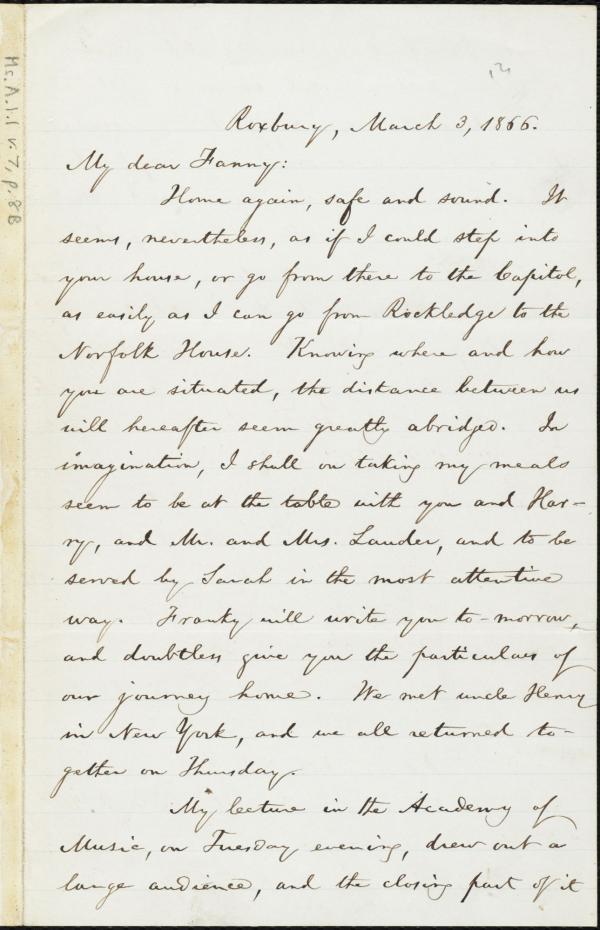 12
Roxbury, March 3, 1866.
My dear Fanny:
Home again, safe and sound. It
seems, nevertheless, as if I could step into
your house, or go from there to the Capitol,
as easily as I can go from Rockledge to the
Norfolk House. Knowing where and how
you are situated, the distance between us
will hereafter seem greatly abridged. In
imagination, I shall on taking my meals
seem to be at the table with you and Har-
ry, and Mr. and Mrs. Lauder, and to be
served by Sarah in the most attentive
way. Franky will write you to-morrow,
and doubtless give you the particulars of
our journey home. We met uncle Henry
in New York, and we all returned to-
gether on Thursday.
My lecture in the Academy of
Music, on Tuesday evening, drew out a
large audience, and the closing part of it
Ms. A.1.1 v.7, p.8B